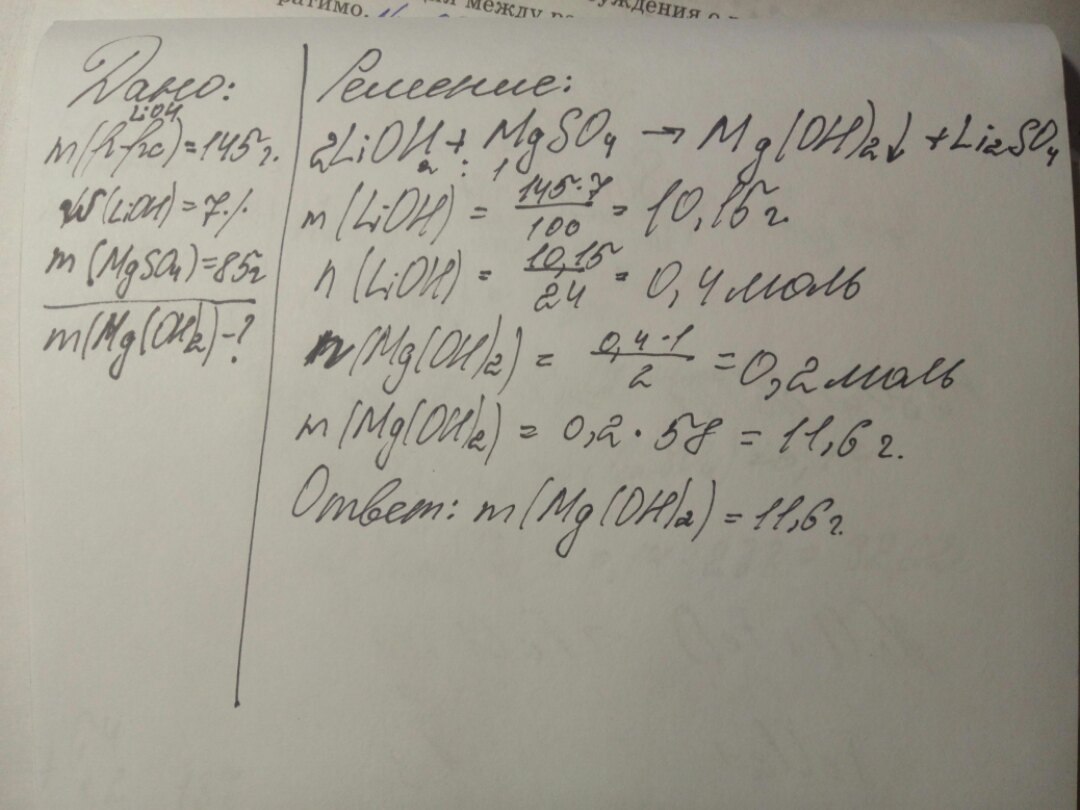 уждения о
ратимо.
между
Дано:
LiOH
m(р-ра)=145г.
W(LiOH)=7%
m(MgSO₄)=85г
m(Mg(OH)₂)-?
Решение:
2LiOH + MgSO₄ → Mg(OH)₂↓ + Li₂SO₄
2 : 1
m(LiOH) = 145·7/100 = 10,15г.
n(LiOH) = 10,15/24 = 0,4моль
n(Mg(OH)₂) = 0,4·1/2 = 0,2моль
m(Mg(OH)₂) = 0,2·58 = 11,6г.
Ответ: m(Mg(OH)₂) = 11,6г.